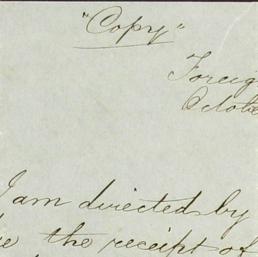 "Copy"
Foreig
Octobe
I am directed by
the receipt of